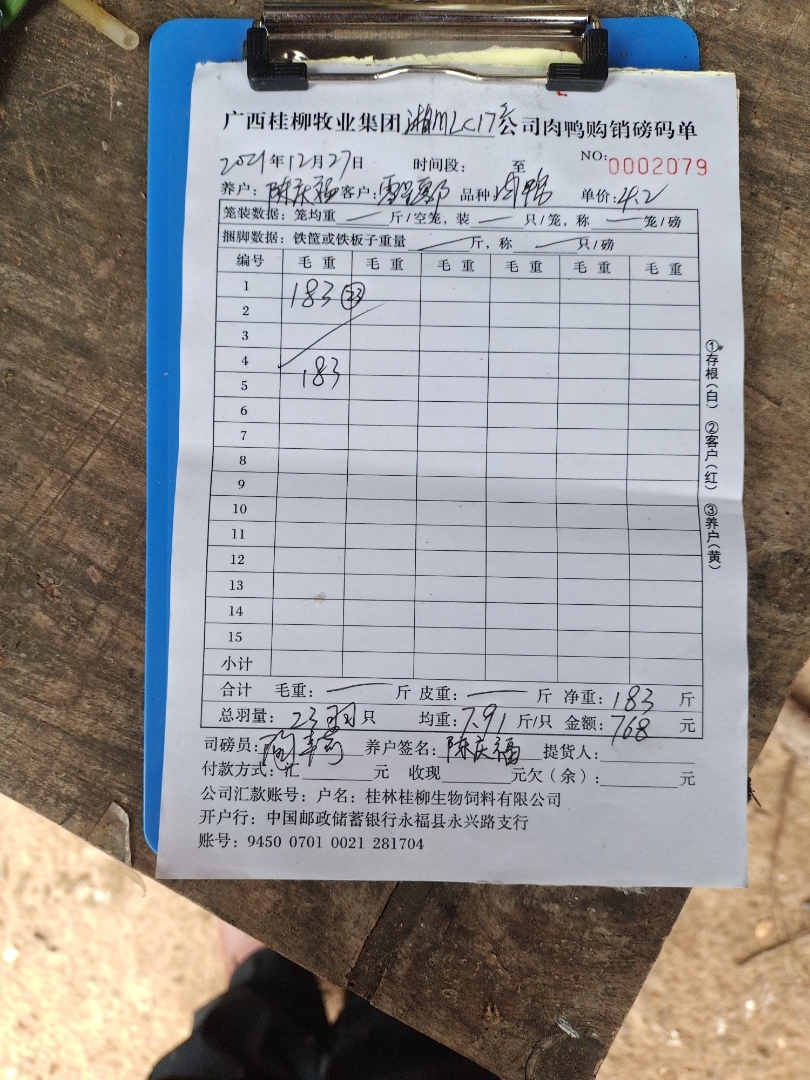 广西桂柳牧业集团 公司肉鸭购销磅码单
2021年12月27日 时间段： 至 NO:0002079
养户：陈庆福 客户： 品种：肉鸭 单价：4.2
笼装数据：笼均重 斤/空笼，装 只/笼，称 笼/磅
捆脚数据：铁筐或铁板子重量 斤，称 只/磅
编号 毛重 毛重 毛重 毛重 毛重 毛重
1 183 23
2
3
4
5 183
6
7
8
9
10
11
12
13
14
15
小计
合计 毛重： 斤 皮重： 斤 净重：183 斤
总羽量：23羽只 均重：7.91斤/只 金额：768 元
司磅员： 养户签名：陈庆福 提货人：
付款方式：汇 元 收现 元欠（余）： 元
公司汇款账号：户名：桂林桂柳生物饲料有限公司
开户行：中国邮政储蓄银行永福县永兴路支行
账号：9450 0701 0021 281704
①存根（白） ②客户（红） ③养户（黄）